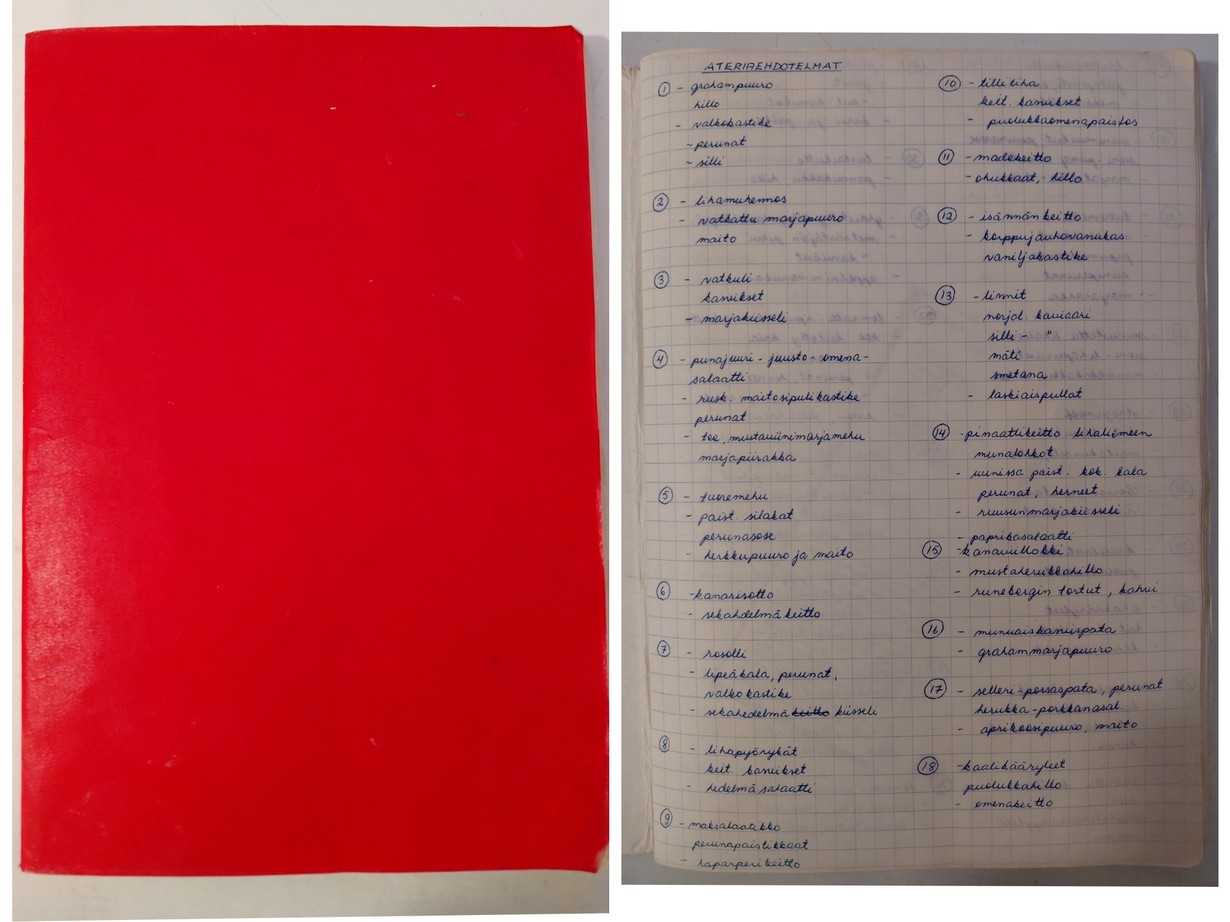 ATERIAEHDOTELMAT
1 - grahampuuro
hillo
- valkokastike
- perunat
- silli
2 - lihamuhennos
- vatkattu marjapuuro
maito
3 - vatkuli
kasvikset
- marjakiisseli
4 - punajuuri - juusto - omena -
salaatti
- rusk. maitosipulikastike
perunat
- tee, mustaviinimarjamehu
marjapiirakka
5 - tuoremehu
- paist. silakat
perunasose
- herkkupuuro ja maito
6 - kanarisotto
- sekahdelmäkeitto
7 - rosolli
- lipeäkala, perunat,
valkokastike
- sekahedelmäkeitto kiisseli
8 - lihapyörykät
keit. kasvikset
- hedelmäsalaatti
9 - maksalaatikko
perunapaistikkaat
- raparperikeitto
10 - tilliliha
keit. kasvikset
- puolukkaomenapaistos
11 - madekeitto
- ohukkaat, hillo
12 - isännänkeitto
- korppujauhovanukas
vaniljakastike
13 - linnit
norjal. kaviaari
silli - "
mäti
smetana
- laskiaispullat
14 - pinaattikeitto lihaliemeen
munalohkot
- uunissa paist. kok. kala
perunat, herneet
- ruusunmarjakiisseli
- paprikasalaatti
15 - kanaviillokki
- mustaherukkahillo
- runebergin tortut, kahvi
16 - munuaiskasvispata
- grahammarjapuuro
17 - selleri-porsaspata, perunat
herukka-porkkanasal.
- aprikoosipuuro, maito
18 - kaalikääryleet
puolukkahillo
- omenakeitto